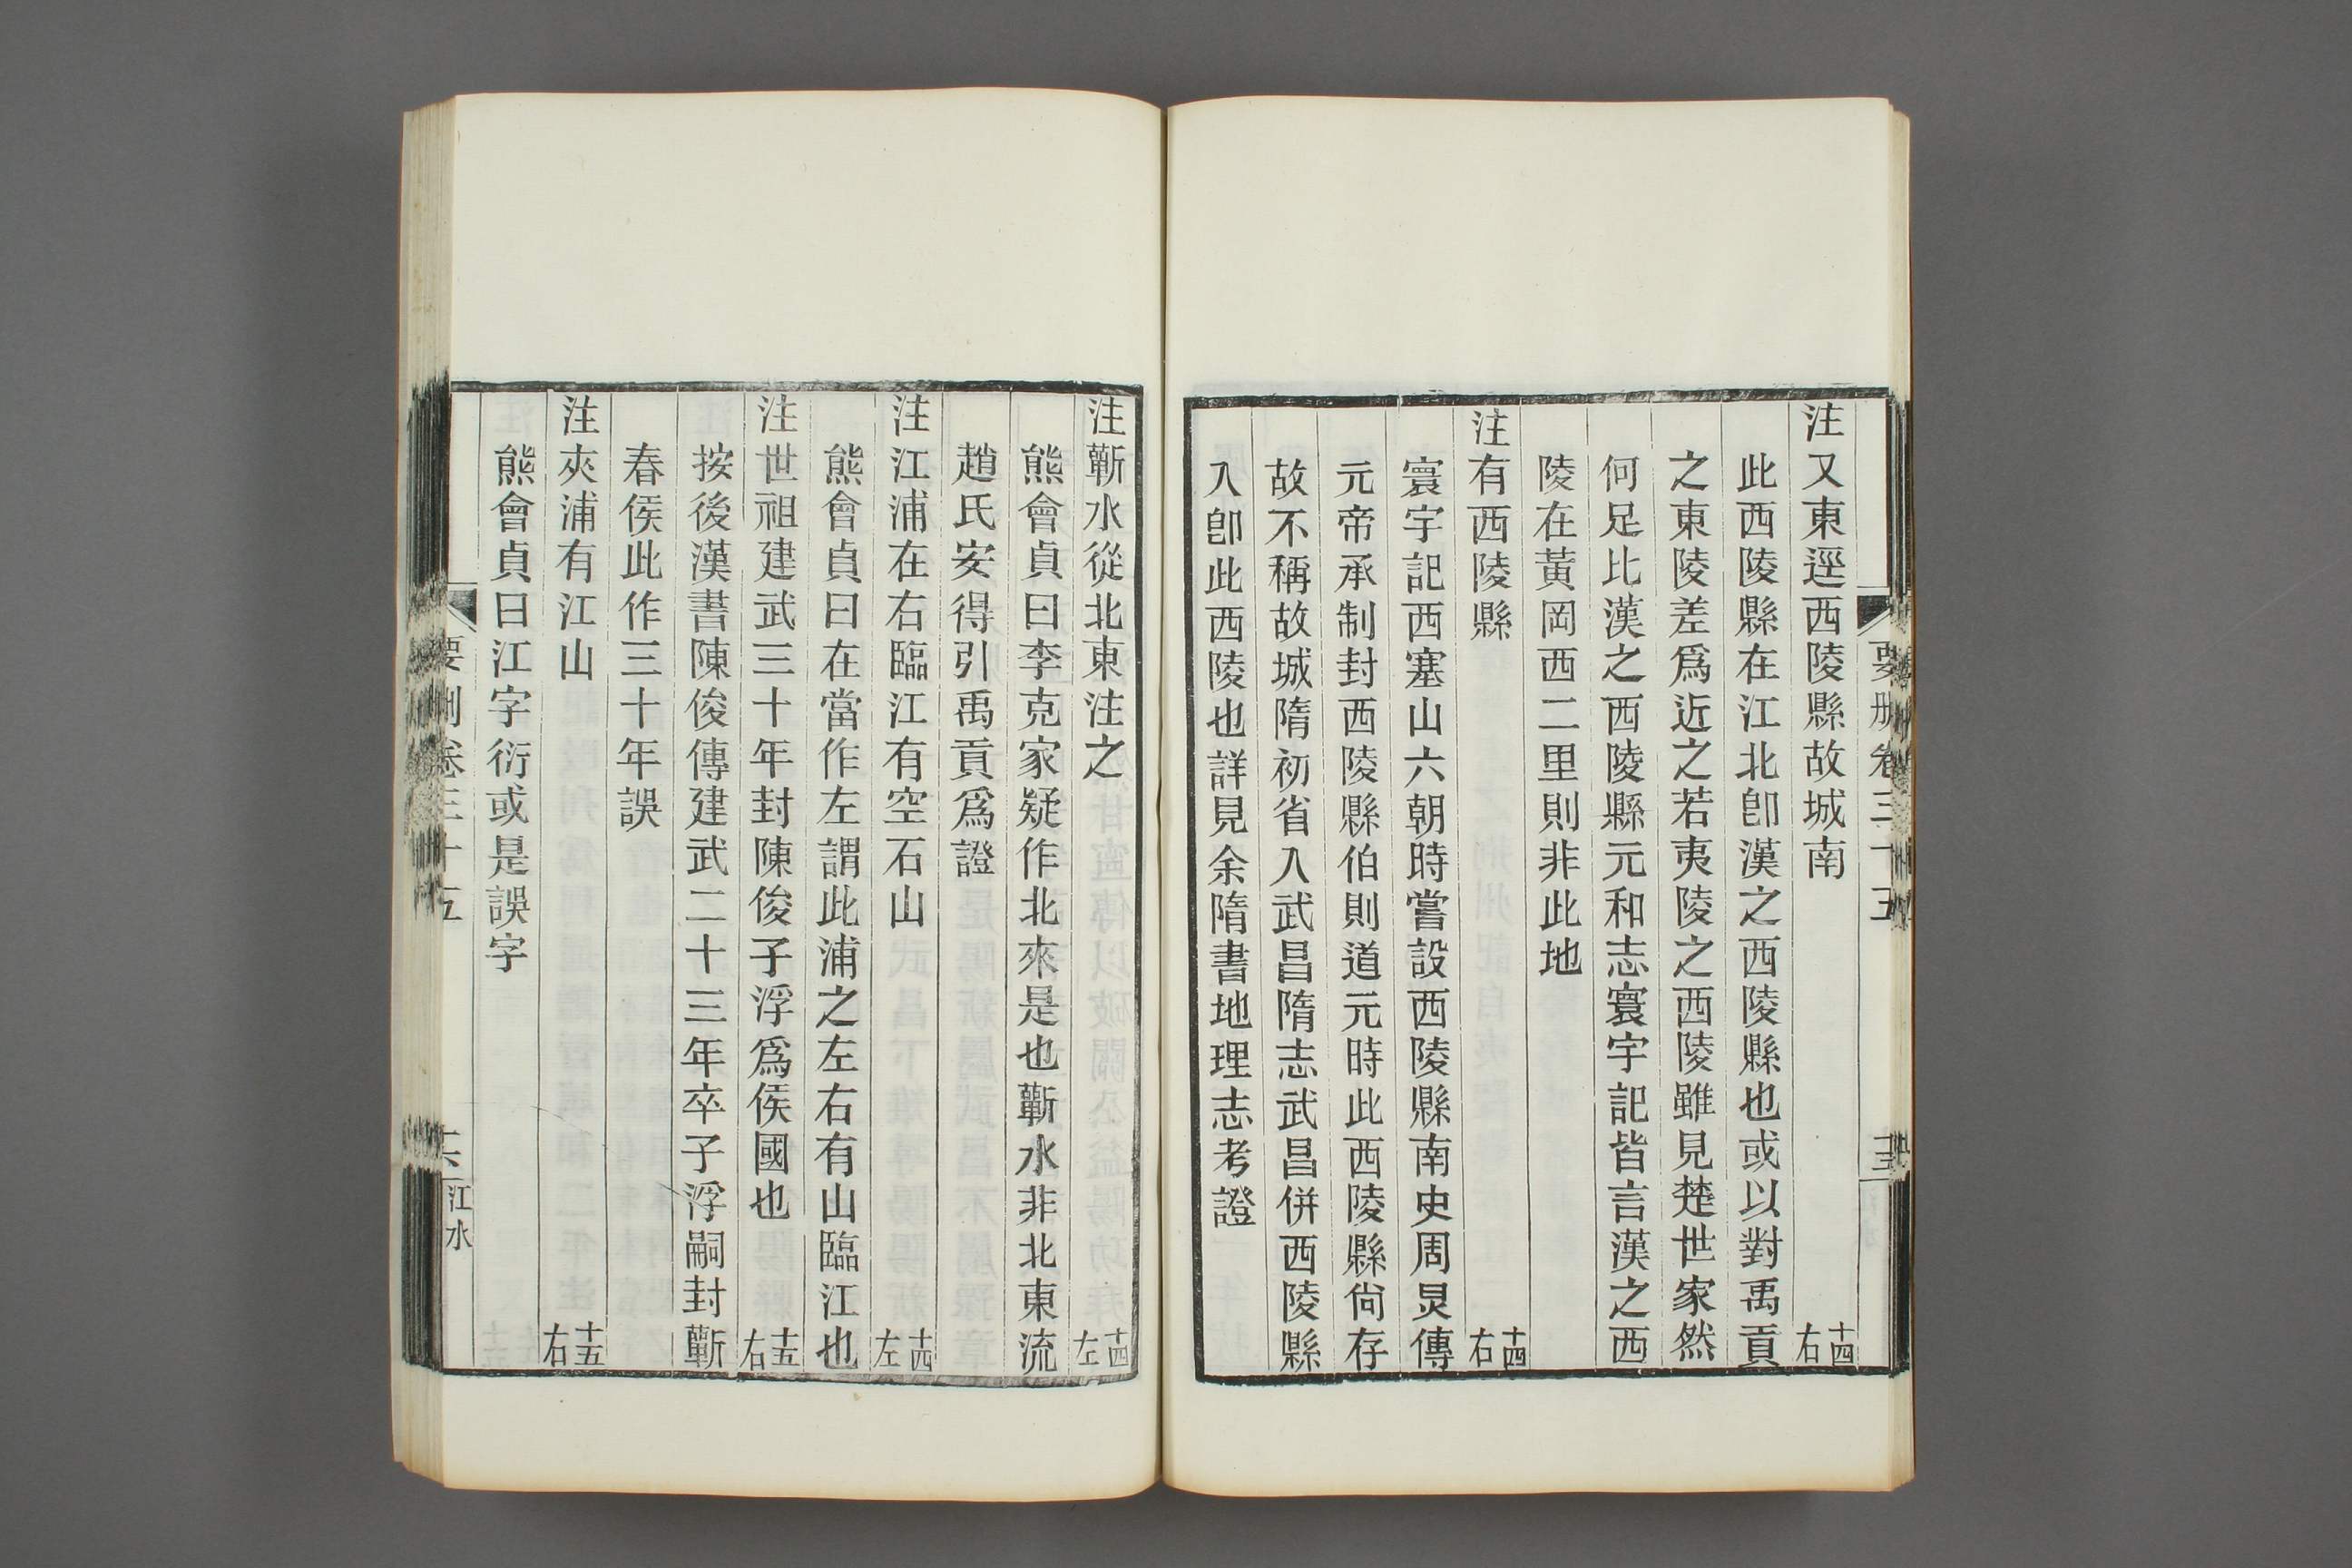 注又東逕西陵縣故城南 十四右
此西陵縣在江北卽漢之西陵縣也或以對禹貢
之東陵差爲近之若夷陵之西陵雖見楚世家然
何足比漢之西陵縣元和志寰宇記皆言漢之西
陵在黃岡西二里則非此地
注有西陵縣 十四右
寰宇記西塞山六朝時嘗設西陵縣南史周炅傳
元帝承制封西陵縣伯則道元時此西陵縣尙存
故不稱故城隋初省入武昌隋志武昌併西陵縣
入卽此西陵也詳見余隋書地理志考證
注蘄水從北東注之 十四左
熊會貞曰李克家疑作北來是也蘄水非北東流
趙氏安得引禹貢爲證
注江浦在右臨江有空石山 十四左
熊會貞曰在當作左謂此浦之左右有山臨江也
注世祖建武三十年封陳俊子浮爲侯國也 十五右
按後漢書陳俊傳建武二十三年卒子浮嗣封蘄
春侯此作三十年誤
注夾浦有江山 十五右
熊會貞曰江字衍或是誤字
要刪卷三十五
江水